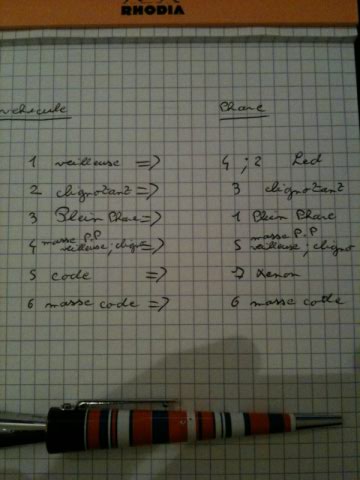 RHODIA
véhicule Phare
1 veilleuse => 4 ; 2 Led
2 clignotant => 3 clignotant
3 Plein Phare => 1 Plein Phare
4 masse P.P veilleuse ; cligno => 5 masse P.P veilleuse ; cligno
5 code => 7 Xenon
6 masse code => 6 masse code